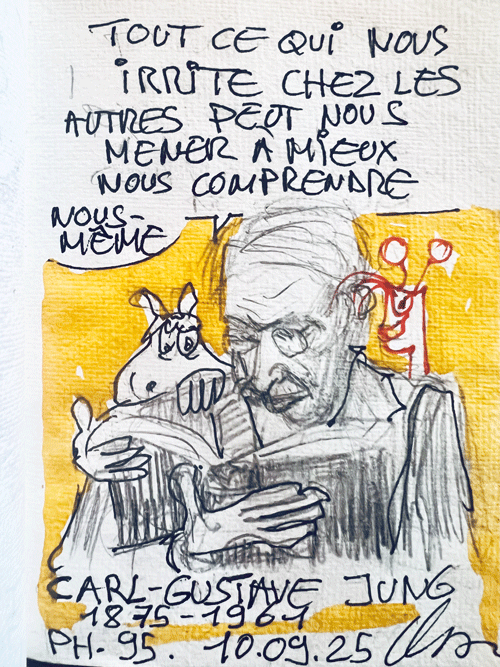 TOUT CE QUI NOUS
IRRITE CHEZ LES
AUTRES PEUT NOUS
MENER À MIEUX
NOUS COMPRENDRE
NOUS-
MÊME
CARL-GUSTAVE JUNG
1875-1961
PH-95. 10.09.25